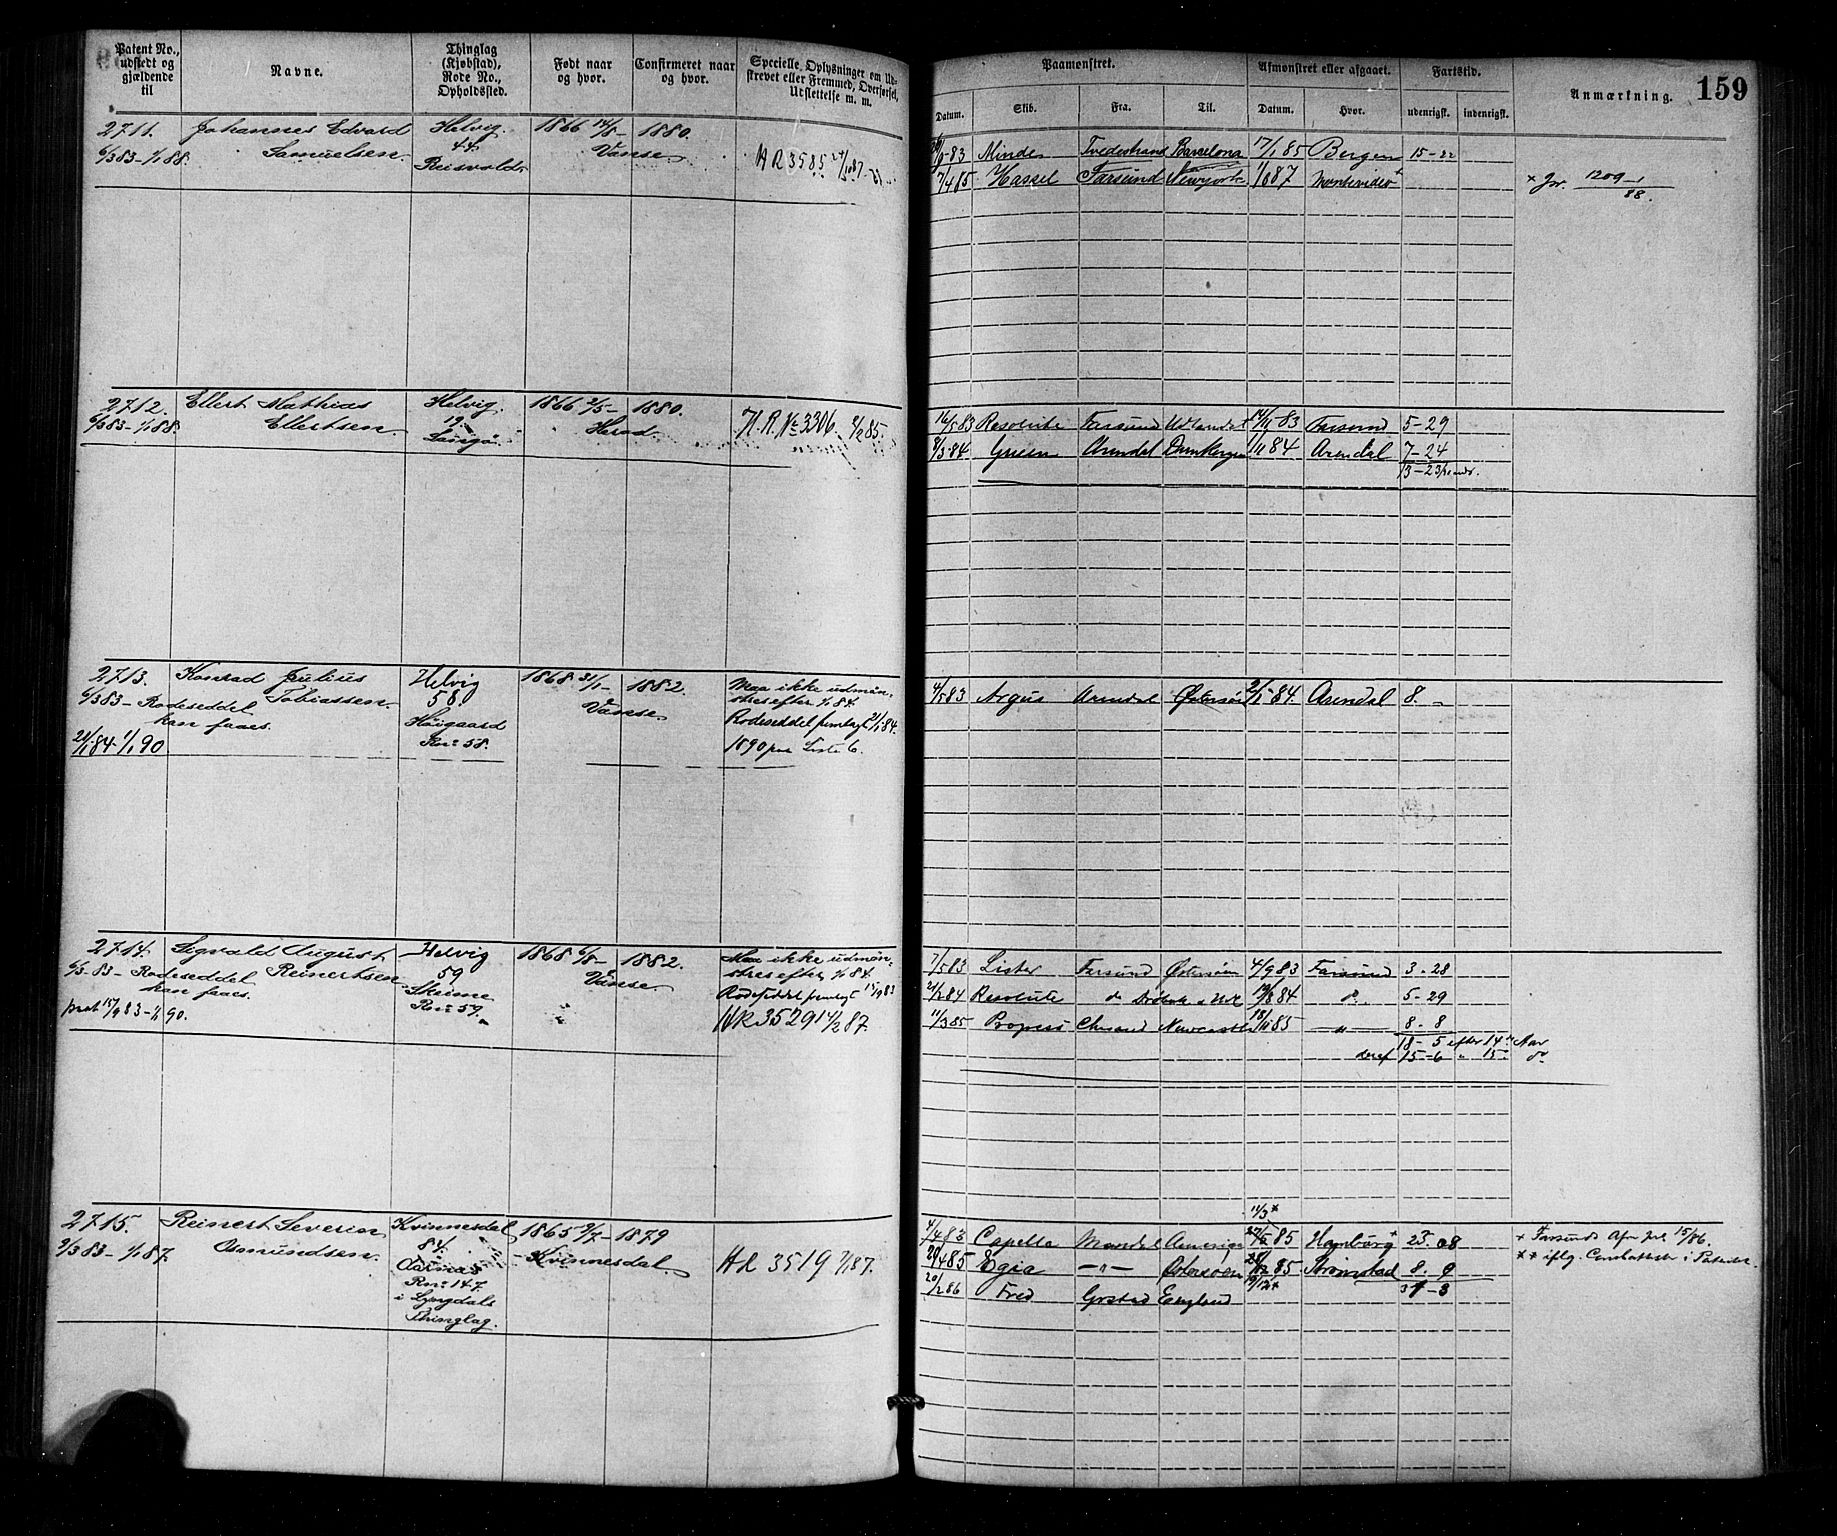 Patent No., udstedt og gjældende til
Navne.
Thinglag (Kjøbstad), Rode No., Opholdssted.
Født naar og hvor.
Confirmeret naar og hvor.
Specielle Oplysninger om Udskrevet eller Fremmed, Overførsel, Udslettelse m. m.
Paamønstret.
Afmønstret eller afgaaet.
Fartstid.
Anmærkning.
159
Datum.
Skib.
Fra.
Til.
Datum.
Hvor.
udenrigsk.
indenrigsk.
2711. Johannes Edvard Helvig. 1866 14/8 - 1880.
6/3 83 - 1/1 88. Samuelsen. 44. Vanse.
Reisvold
HR 3585
83 Minde Tvedestrand Barcelona 17/1 85 Bergen 15-22
7/4 85 Hassel Farsund Newyork 1/8 87 Montevideo +
× Jr. 1209/88.
2712. Ellert Mathias Helvig. 1866 2/5 - 1880.
6/3 83 - 1/1 88. Ellertsen. 19. Herad.
H.R. No 3306. 9/2 85.
16/5 83 Resolute Farsund Udlandet 14/11 83 Farsund 5-29
8/3 84 Green Arendal Dunkerque 1/11 84 Arendal 7-24
13-23
2713. Konrad Julius Helvig 1868 31/1 - 1882.
6/3 83 - Rodeseddel Tobiassen. 58. Vanse.
kan faaes. Høigaard
21/1 84 1/1 90 Rno 58.
Maa ikke udmøn-
stres efter 1/1 84.
Rodeseddel fremlagt 21/1 84.
1890 paa Liste 6.
4/5 83 Argus Arendal Østersøen 2/1 84. Arendal 8. -
2714. Sigvald August Helvig 1868 6/8 - 1882.
6/3 83 - Rodeseddel Reinertsen. 59 Vanse.
kan faaes. Skeime
prot 15/9 83 - 1/1 90. Rno 59.
Maa ikke udmøn-
stres efter 1/1 84.
Rodeseddel fremlagt 15/9 83
HR 3529 14/2 87.
7/5 83 Lister Farsund Østersøen 4/9 83 Farsund 3-28
21/2 84 Resolute do 19/8 84 do. 5-29
11/3 85 Chrsand Newcastle 18/11 85 - " - 8-8
18-5 efter 14de Aar
deraf 15-6 " 15 do
2715. Reinert Severin Kvinnesdal 1865 9/7 - 1879
9/3 83 - 1/1 87. Osmundsen. 84. Kvinnesdal.
Rno 147.
i Lyngdals
Thinglag.
HR 3519 7/1 87.
11/3 ×
4/4 83 Capella Mandal Amerika 85 Hamburg + 23. 08
29/4 85 Egia - " - Østersøen 85 Strømstad 8. 9
20/2 86 Fred Grstad England
× Farsunds Afm Jrl 15/86.
×× iflg.